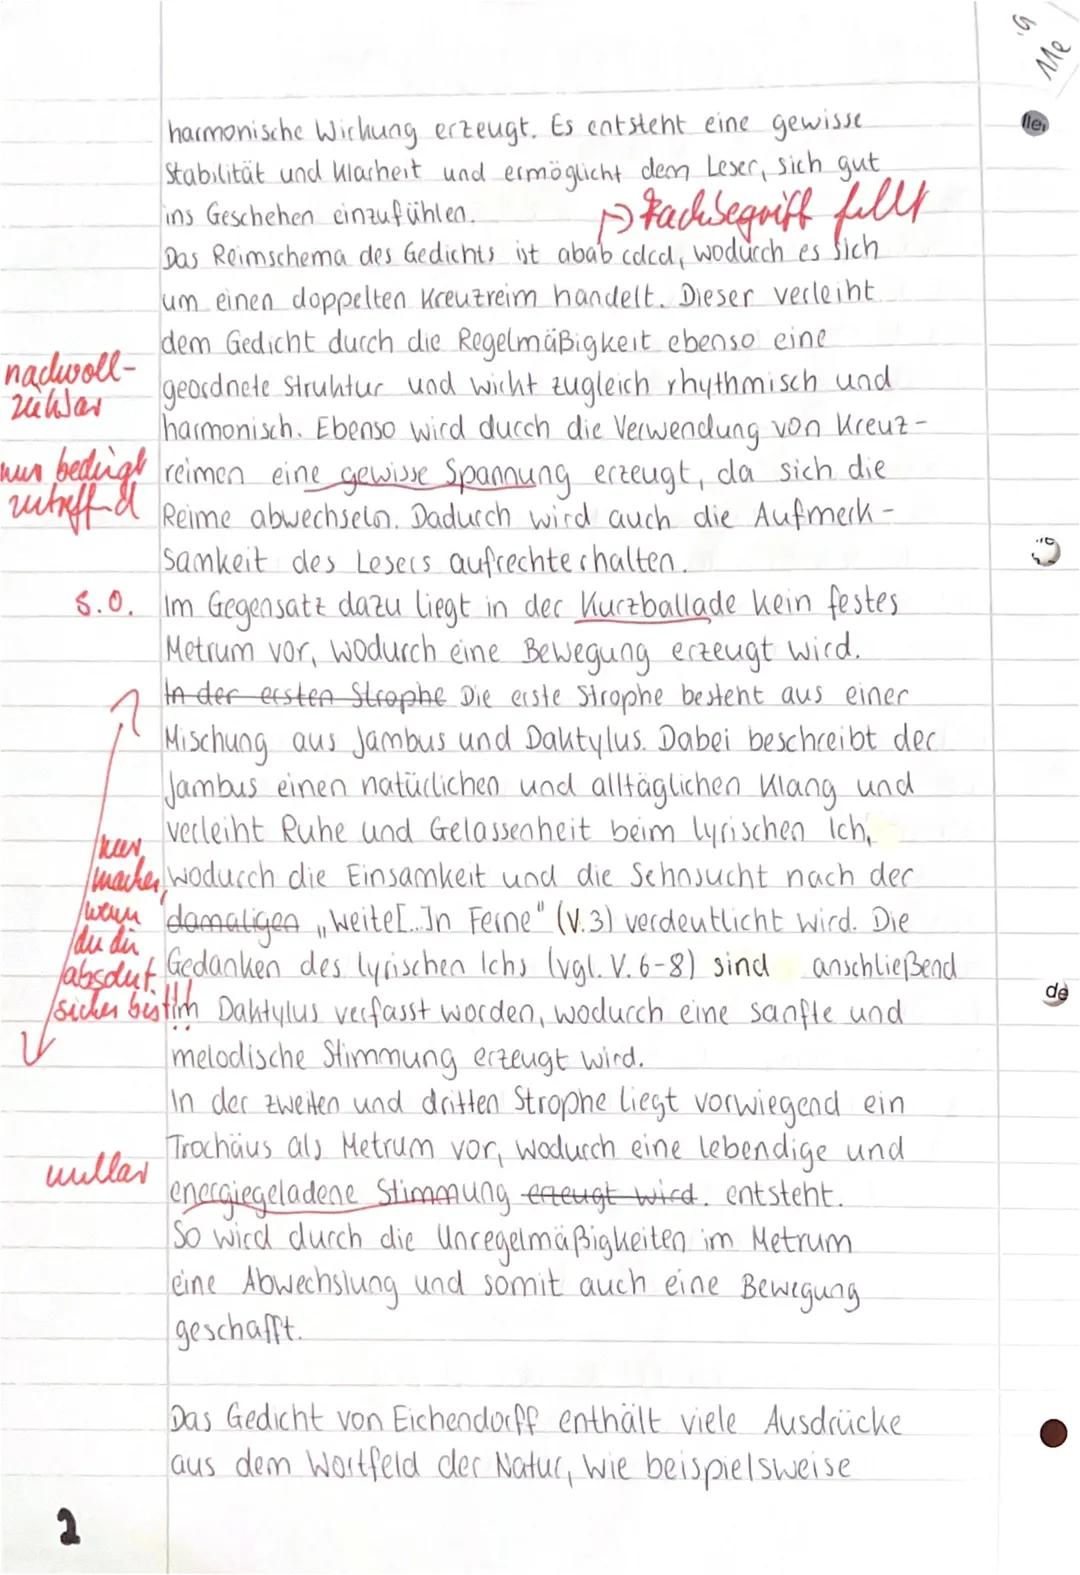 harmonische Wirkung erzeugt. Es entsteht eine gewisse
Stabilität und Klarheit und ermöglicht dem Leser, sich gut
ins Geschehen einzufühlen.
→ Fachbegriff fehlt
Das Reimschema des Gedichts ist abab cdcd, wodurch es sich
um einen doppelten Kreuzreim handelt. Dieser verleiht
dem Gedicht durch die Regelmäßigkeit ebenso eine
nachvoll-
ziehbar
geordnete Struktur und wirkt zugleich rhythmisch und
harmonisch. Ebenso wird durch die Verwendung von Kreuz-
nur bedingt
zutreffend
reimen eine gewisse Spannung erzeugt, da sich die
Reime abwechseln. Dadurch wird auch die Aufmerk-
samkeit des Lesers aufrechterhalten.
s.o.
Im Gegensatz dazu liegt in der Kurzballade kein festes
Metrum vor, wodurch eine Bewegung erzeugt wird.
In der ersten Strophe Die erste Strophe besteht aus einer
Mischung aus Jambus und Daktylus. Dabei beschreibt der
Jambus einen natürlichen und alltäglichen Klang und
verleiht Ruhe und Gelassenheit beim lyrischen Ich,
nur
machen,
wenn
du dir
absolut
sicher bist!!!
wodurch die Einsamkeit und die Sehnsucht nach der
damaligen „weite[...]n Ferne" (V.3) verdeutlicht wird. Die
Gedanken des lyrischen Ichs (vgl. V. 6-8) sind anschließend
im Daktylus verfasst worden, wodurch eine sanfte und
melodische Stimmung erzeugt wird.
In der zweiten und dritten Strophe liegt vorwiegend ein
Trochäus als Metrum vor, wodurch eine lebendige und
unklar
energiegeladene Stimmung erzeugt wird. entsteht.
So wird durch die Unregelmäßigkeiten im Metrum
eine Abwechslung und somit auch eine Bewegung
geschafft.
Das Gedicht von Eichendorff enthält viele Ausdrücke
aus dem Wortfeld der Natur, wie beispielsweise
2
Me
de